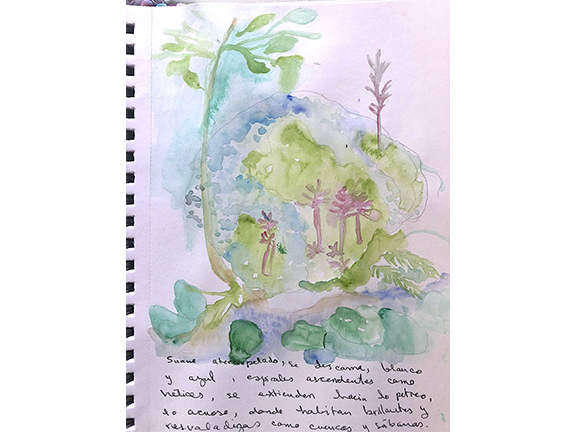 Suave aterciopelado, se descarna, blanco
y azul, espirales ascendentes como
hélices, se extienden hacia lo petreo,
lo acuoso, donde habitan brillantes y
resvaladizas como cuencos y sábanas.